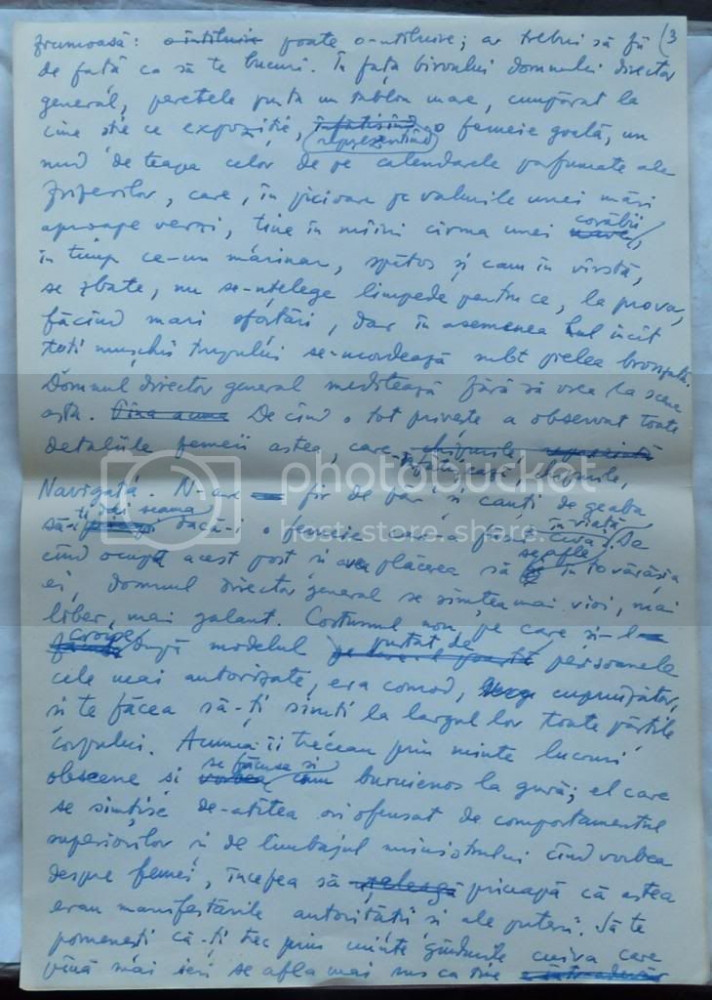 frumoasă: o întîlnire poate o-ntîlnire; ar trebui să fii (3
de față ca să te bucuri. În fața biroului domnului director
general, peretele purta un tablou mare, cumpărat la
cine știe ce expoziție, înfățișînd o femeie goală, un
reprezentînd
nud de teapa celor de pe calendarele parfumate ale
frizerilor, care, în picioare pe valurile unei mări
aproape verzi, ține în mîini cîrma unei nave,
corăbii
în timp ce-un marinar, spătos și cam în vîrstă,
se zbate, nu se-nțelege limpede pentru ce, la prova,
făcînd mari sforțări, dar în asemenea hal încît
toți mușchii trupului se-nnordează subt pielea bronzată.
Domnul director general meditează fără să vrea la scena
asta. Pînă acuma De cînd o tot privește a observat toate
detaliile femeii astea, care
Navigată. N-are fir de păr și cauți de geaba
să-ți dai seama dacă-i o femeie
în viață
cînd ocupă acest post și avea plăcerea să se afle în tovărășia
ei, domnul director general se simțea mai vioi, mai
liber, mai galant. Costumul nou, pe care și-l
croise după modelul purtat de persoanele
cele mai autorizate, era comod, cuprinzător,
și te făcea să-ți simți la largul lor toate părțile
corpului. Acuma îi treceau prin minte lucruri
obscene și se făcuse și cam buruienos la gură; el care
vorbea
se simțise de-atîtea ori ofensat de comportamentul
superiorilor și de limbajul ministrului cînd vorbea
despre femei, începea să priceapă că astea
erau manifestările autorității și ale puterii. Să te
pomenești că-ți trec prin minte gîndurile cuiva care
pînă mai ieri se afla mai sus ca tine
photobucket
host. store. share.